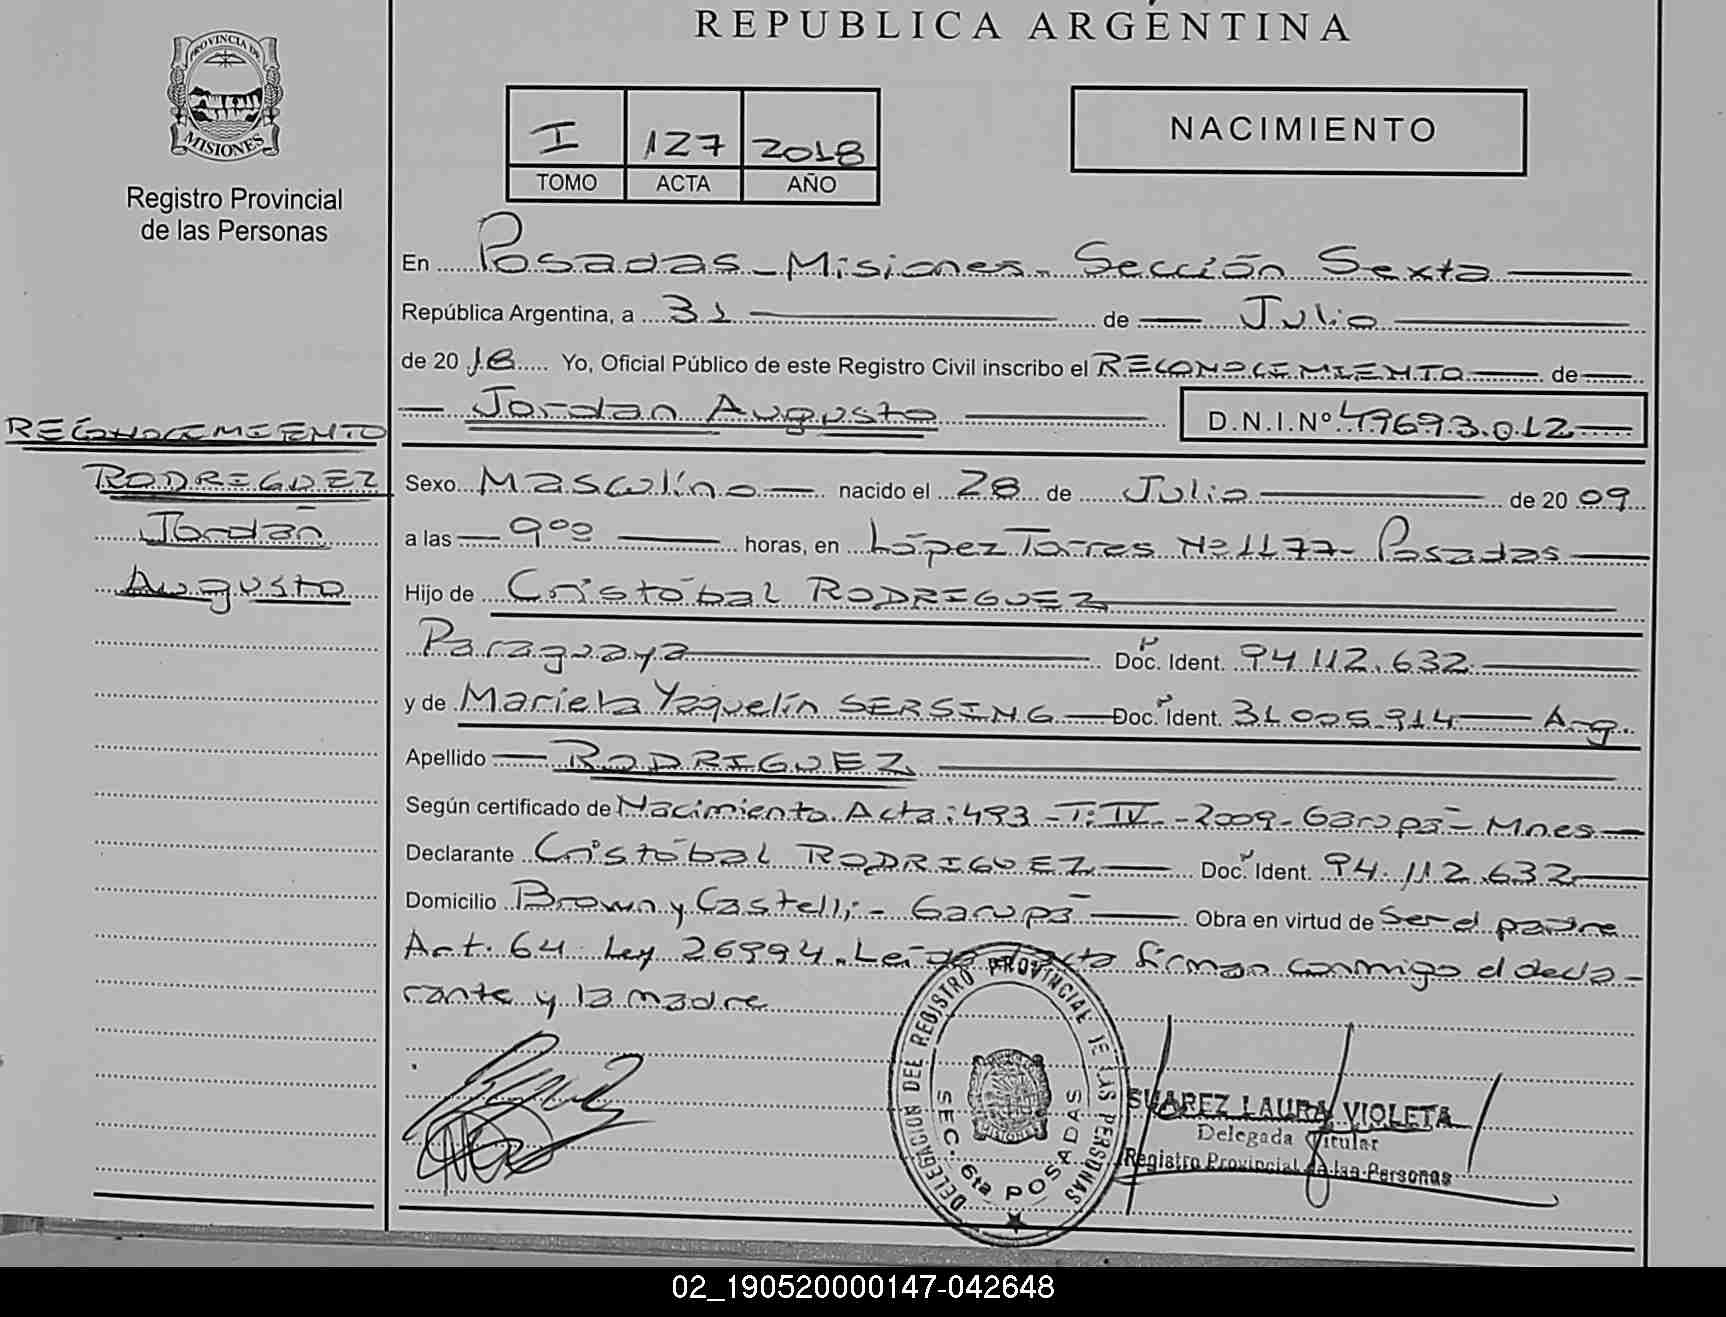 REPUBLICA ARGENTINA
PROVINCIA DE
MISIONES
Registro Provincial
de las Personas
I 127 2018
TOMO ACTA AÑO
NACIMIENTO
En Posadas - Misiones - Sección Sexta
República Argentina, a 31 de Julio
de 2018 Yo, Oficial Público de este Registro Civil inscribo el RECONOCIMIENTO de
Jordan Augusto D.N.I.Nº 49693.012
RECONOCIMIENTO
RODRIGUEZ
Jordán
Augusto
Sexo Masculíno nacido el 28 de Julio de 2009
a las 9ºº horas, en López Torres Nº 1177 - Posadas
Hijo de Cristóbal RODRIGUEZ
Paraguaya Doc. Ident. 94.112.632
y de Mariela Yaquelín SERSING Doc. Ident. 31.005.914 Arg.
Apellido RODRIGUEZ
Según certificado de Nacimiento. Acta: 493 - T: IV - 2009 - Garupá - Mnes
Declarante Cristóbal RODRIGUEZ Doc. Ident. 94.112.632
Domicilio Brown y Castelli - Garupá Obra en virtud de Ser el padre
Art. 64 Ley 26994. Leída Acta firman conmigo el decla-
rante y la madre
DELEGACION DEL REGISTRO PROVINCIAL DE LAS PERSONAS
SEC. 6ta POSADAS
MISIONES
SUAREZ LAURA VIOLETA
Delegada Titular
Registro Provincial de las Personas
02_190520000147-042648